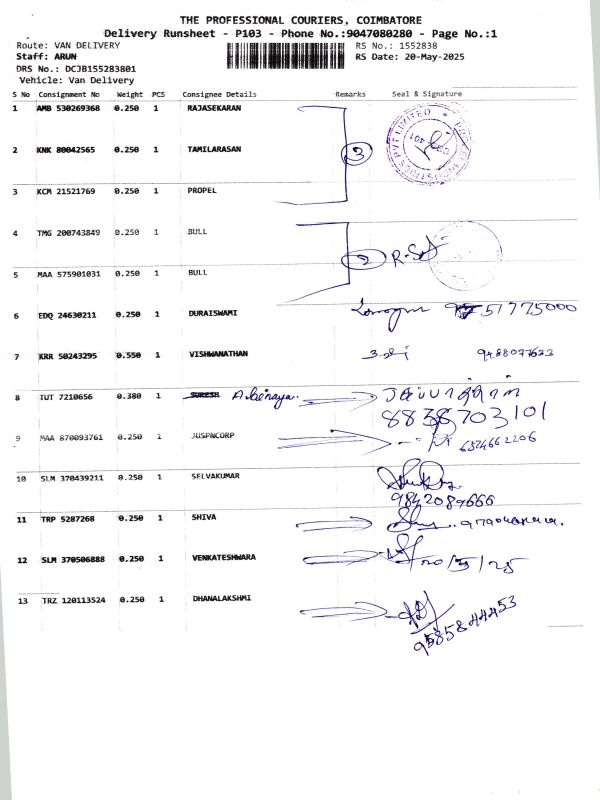 THE PROFESSIONAL COURIERS, COIMBATORE
Delivery Runsheet - P103 - Phone No.:9047080280 - Page No.:1
Route: VAN DELIVERY
RS No.: 1552838
Staff: ARUN
RS Date: 20-May-2025
DRS No.: DCJB155283801
Vehicle: Van Delivery
S No Consignment No Weight PCS Consignee Details Remarks Seal & Signature
1 AMB 530269368 0.250 1 RAJASEKARAN
2 KNK 80042565 0.250 1 TAMILARASAN 3
3 KCM 21521769 0.250 1 PROPEL
4 TMG 200743849 0.250 1 BULL
2
5 MAA 575901031 0.250 1 BULL
6 EDQ 24630211 0.250 1 DURAISWAMI 51775000
7 KRR 50243295 0.550 1 VISHWANATHAN
8 TUT 7210656 0.380 1 SURESH
8838703101
9 MAA 870093761 0.250 1 JUSPNCORP 6524662206
10 SLM 370439211 0.250 1 SELVAKUMAR
9842089666
11 TRP 5287268 0.250 1 SHIVA
12 SLM 370506888 0.250 1 VENKATESHWARA 20/5/25
13 TRZ 120113524 0.250 1 DHANALAKSHMI
9585844453